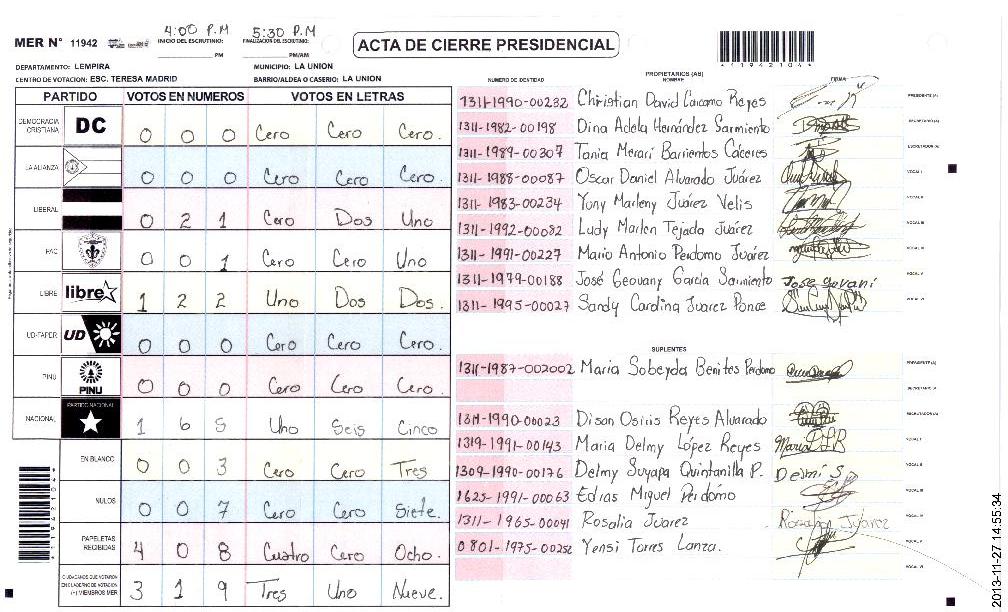 4:00 P.M 5:30 P.M
MER N° 11942 INICIO DEL ESCRUTINIO: FINALIZACIÓN DEL ESCRUTINIO:
PM PM/AM
ACTA DE CIERRE PRESIDENCIAL
DEPARTAMENTO: LEMPIRA MUNICIPIO: LA UNION
CENTRO DE VOTACION: ESC. TERESA MADRID BARRIO/ALDEA O CASERIO: LA UNION
PARTIDO VOTOS EN NUMEROS VOTOS EN LETRAS
DEMOCRACIA CRISTIANA DC 0 0 0 Cero Cero Cero.
LA ALIANZA 0 0 0 Cero Cero Cero.
LIBERAL 0 2 1 Cero Dos Uno
PAC 0 0 1 Cero Cero Uno
LIBRE libre 1 2 2 Uno Dos Dos.
UD-FAPER UD 0 0 0 Cero Cero Cero.
PINU PINU 0 0 0 Cero Cero Cero.
NACIONAL PARTIDO NACIONAL 1 6 5 Uno Seis Cinco
EN BLANCO 0 0 3 Cero Cero Tres
NULOS 0 0 7 Cero Cero Siete.
PAPELETAS RECIBIDAS 4 0 8 Cuatro Cero Ocho.
CIUDADANOS QUE VOTARON EN CUADERNO DE VOTACION (+) MIEMBROS MER 3 1 9 Tres Uno Nueve.
PROPIETARIOS (AS)
NUMERO DE IDENTIDAD NOMBRE FIRMA
1311-1990-00232 Christian David Cárcamo Reyes PRESIDENTE (A)
1311-1982-00198 Dina Adela Hernández Sarmiento SECRETARIO (A)
1311-1989-00307 Tania Merari Barrientos Cáceres ESCRUTADOR (A)
1311-1988-00087 Oscar Daniel Alvarado Juárez VOCAL I
1311-1983-00234 Yony Marleny Juárez Velis VOCAL II
1311-1992-00082 Ludy Marlen Tejada Juárez VOCAL III
1311-1991-00227 Mario Antonio Perdomo Juárez VOCAL IV
1311-1979-00188 José Geovany García Sarmiento Jose Govani VOCAL V
1311-1995-00027 Sandy Carolina Juarez Ponce VOCAL VI
SUPLENTES
1311-1987-002002 Maria Sobeyda Benites Perdomo PRESIDENTE (A)
SECRETARIO (A)
1311-1990-00023 Dison Osiris Reyes Alvarado ESCRUTADOR (A)
1319-1991-00143 Maria Delmy López Reyes VOCAL I
1309-1990-00176 Delmy Suyapa Quintanilla P. Delmi S VOCAL II
1625-1991-00063 Edias Miguel Perdomo VOCAL III
1311-1965-00041 Rosalia Juarez Rosalia Juarez VOCAL IV
0801-1975-00252 Yensi Torres Lanza. VOCAL V
VOCAL VI
2013-11-27 14:55:34